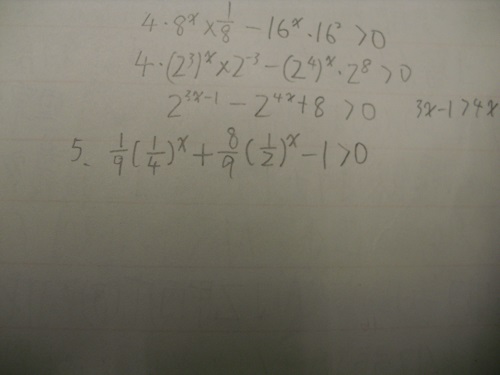 4·8ˣ×1/8 - 16ˣ·16² >0
4·(2³)ˣ×2⁻³ - (2⁴)ˣ·2⁸ >0
2³ˣ⁻¹ - 2⁴ˣ⁺⁸ >0 3x-1>4x
5、 1/9(1/4)ˣ + 8/9(1/2)ˣ - 1>0